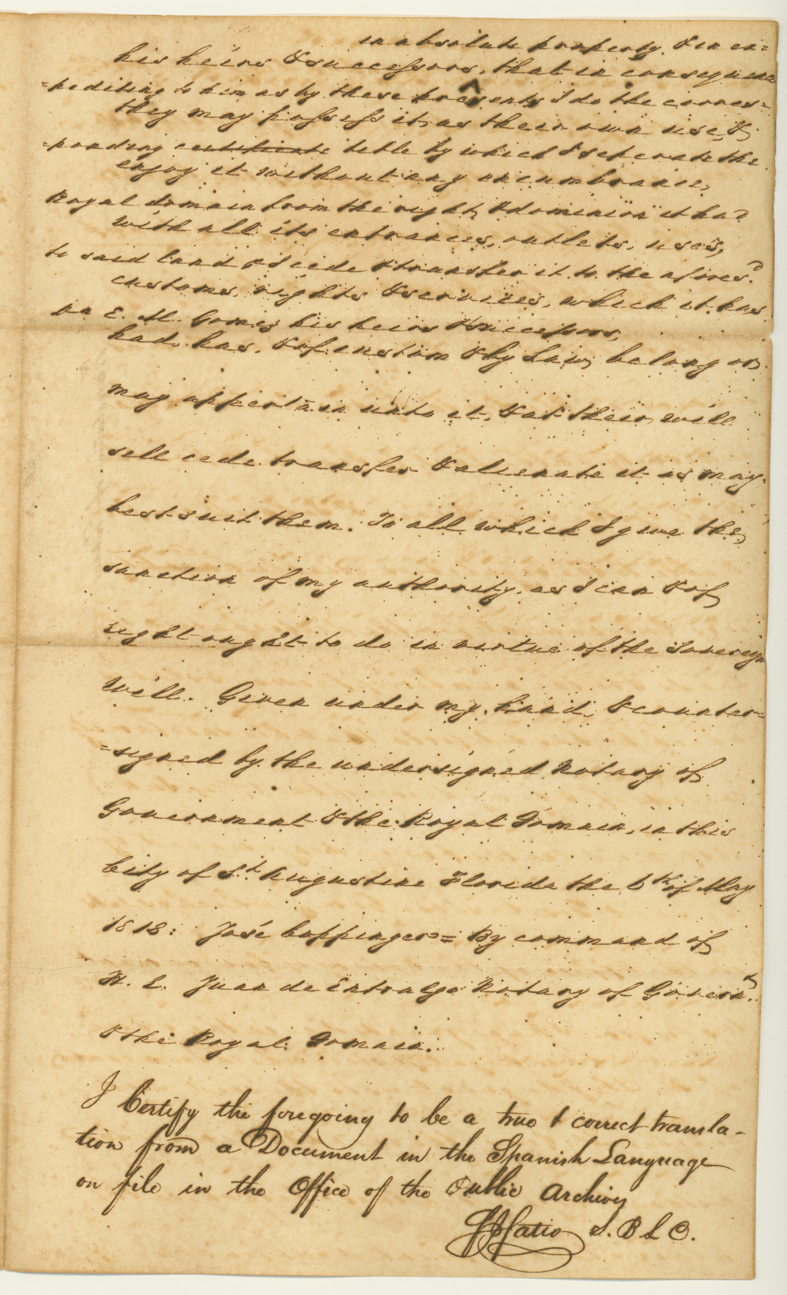 in absolute property & in ex=
his heirs & successors, that in consequence
=pediting to him as by these presents I do the corres=
they may possess it, as their own use, &
=ponding certificate title by which I seperate the
enjoy it without any incumbrance,
Royal domain from the right & dominion it had
with all its entrances, outlets, uses,
to said land & I cede & transfer it to the afores.d
customs, rights & services, which it has
on E. M. Gomez his heirs & successors,
had, has, & of custom & by Law, belong or
may appertain unto it, & at their will
sell cede transfer & alienate it as may
best suit them. To all which I give the
sanction of my authority, as I can & of
right ought to do in virtue of the Sovereign
Will. Given under my hand, & counter=
=signed by the undersigned Notary of
Government & the Royal Domain, in this
City of St. Augustine Florida the 6th of May
1818: José Coppinger = By command of
H. E. Juan de Entralgo Notary of Governt.
& the Royal Domain.
I Certify the foregoing to be a true & correct transla-
tion from a Document in the Spanish Language
on file in the Office of the Public Archives
S. B. L. C.